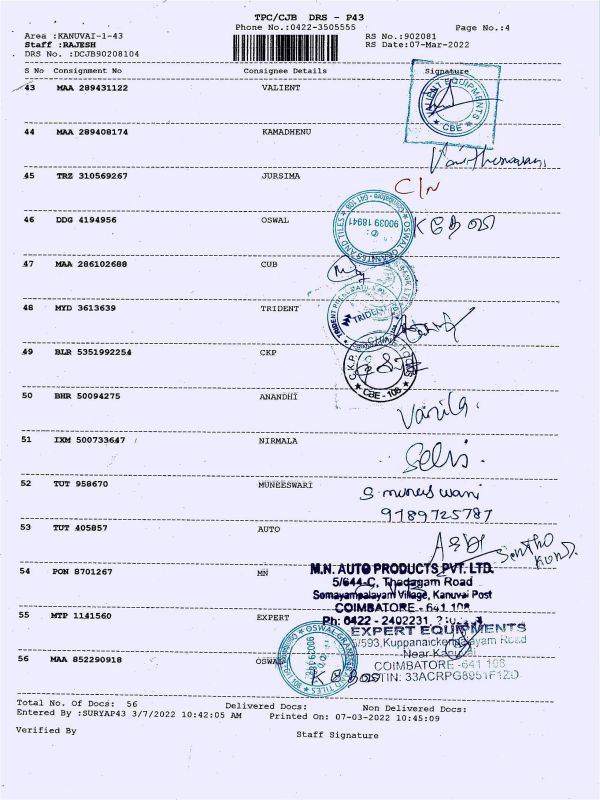 TPC/CJB DRS - P43
Phone No.:0422-3505555
Page No.:4
Area :KANUVAI-1-43
RS No.:902081
Staff :RAJESH
RS Date:07-Mar-2022
DRS No. :DCJB90208104
S No Consignment No Consignee Details Signature
43 MAA 289431122 VALIENT
VALIENT EQUIPMENTS
CBE
44 MAA 289408174 KAMADHENU
45 TRZ 310569267 JURSIMA
C/N
46 DDG 4194956 OSWAL
OSWAL GRANITES AND TILES
90039 18941
47 MAA 286102688 CUB
48 MYD 3613639 TRIDENT
TRIDENT
49 BLR 5351992254 CKP
C.K.P. TOOLS
CBE - 108
50 BHR 50094275 ANANDHI
51 IXM 500733647 NIRMALA
Selvi.
52 TUT 958670 MUNEESWARI
S. muneeswari
9789725787
53 TUT 405857 AUTO
54 PON 8701267 MN
M.N. AUTO PRODUCTS PVT. LTD.
5/644-C, Thadagam Road
Somayampalayam Village, Kanuvai Post
COIMBATORE - 641 108
Ph: 0422 - 2402231,
55 MTP 1141560 EXPERT
EXPERT EQUIPMENTS
Road
Near Kanuvai
COIMBATORE -641 108
GSTIN: 33ACRPG8951F1ZD
56 MAA 852290918 OSWAL
OSWAL GRANITES AND TILES
Total No. Of Docs: 56 Delivered Docs: Non Delivered Docs:
Entered By :SURYAP43 3/7/2022 10:42:05 AM Printed On: 07-03-2022 10:45:09
Verified By
Staff Signature